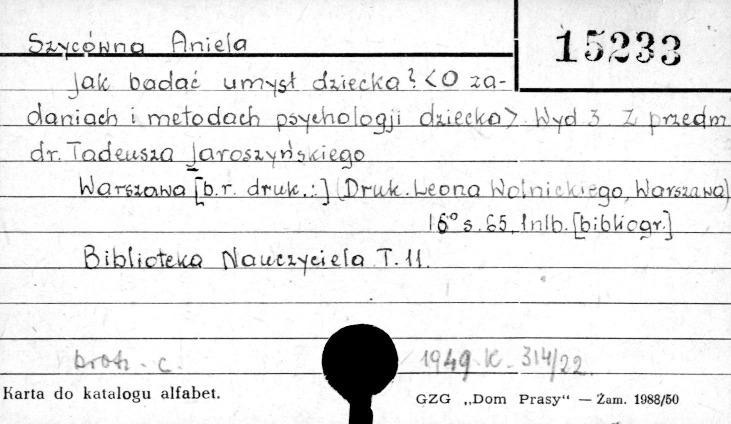 15233
Szycówna Aniela
Jak badać umysł dziecka? <O za-
daniach i metodach psychologji dziecka> Wyd 3 Z przedm
dr. Tadeusza Jaroszyńskiego
Warszawa [b.r. druk.:] (Druk. Leona Wolnickiego, Warszawa)
16° s. 65, 1nlb. [bibliogr.]
Biblioteka Nauczyciela T. 11.
brosz. c. 1949 K. 314/22.
Karta do katalogu alfabet. GZG „Dom Prasy" — Zam. 1988/50